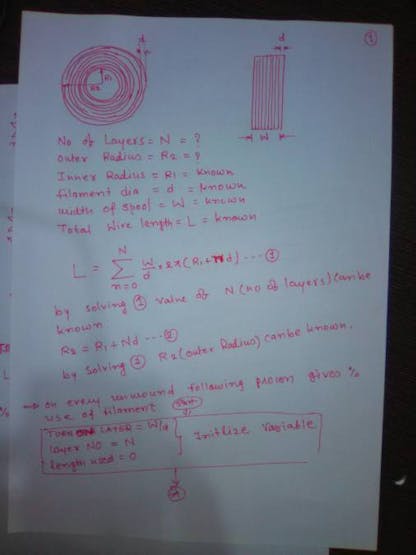 1
d
R1
R2
d
W
No of Layers = N = ?
Outer Radius = R2 = ?
Inner Radius = R1 = known
filament dia = d = known
width of spool = W = known
Total Wire length = L = known
L = N Σ n=0 W/d × 2π (R1 + nd) ---- ①
by solving ① value of N (no of layers) can be
known.
R2 = R1 + Nd ---- ②
by solving ② R2 (outer Radius) can be known.
→ on every unwound following process gives %
use of filament
Start
TURN ON LAYER = W/d
layer NO = N
length used = 0
Initlize variable
A